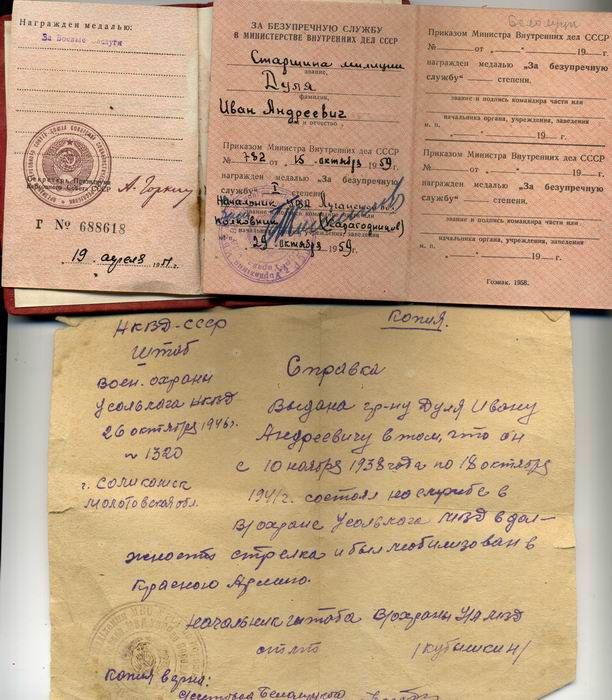 Награжден медалью:
За Боевые заслуги
А. Горкин
Г № 688618
19 апреля
ЗА БЕЗУПРЕЧНУЮ СЛУЖБУ
В МИНИСТЕРСТВЕ ВНУТРЕННИХ ДЕЛ СССР
Старшина милиции
звание,
Дуля
фамилия,
Иван Андреевич
и отчество
Приказом Министра Внутренних дел СССР
№ 782 от 15 октября 1959
награжден медалью „За безупречную
службу“ I степени.
Начальник
полковник (Карагодинов)
29 октября 1959
Приказом Министра Внутренних дел СССР
№ от 19 г.
награжден медалью „За безупречную
службу“ степени.
звание и подпись командира части или
начальника органа, учреждения, заведения
м. п. 19 г.
Приказом Министра Внутренних дел СССР
№ от 19 г.
награжден медалью „За безупречную
службу“ степени.
звание и подпись командира части или
начальника органа, учреждения, заведения
м. п. 19 г.
Гознак. 1958.
НКВД-СССР
Штаб
Воен. охраны
Усольлага НКВД
26 октября 1946г.
№ 1320
г. Соликамск
Молотовской обл.
Копия.
Справка
Выдана гр-ну Дуля Ивану
Андреевичу в том, что он
с 10 ноября 1938 года по 18 октября
1941г. состоял на службе в
В/охране Усольлага МВД в дол-
жности стрелка и был мобилизован в
Красною Армию.
Начальник штаба В/охраны УМВД
(Кубышкин)
Копия верна: